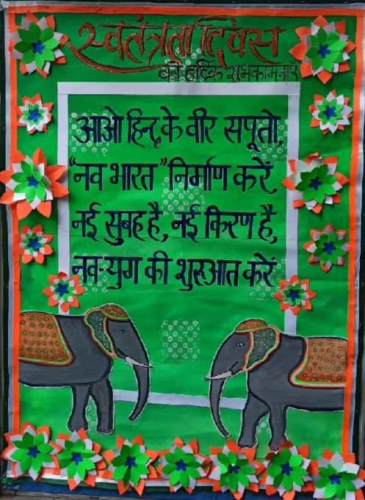 स्वतंत्रता दिवस
की हार्दिक शुभकामनाएं
आओ हिन्द के वीर सपूतो,
"नव भारत" निर्माण करें,
नई सुबह है, नई किरण है,
नव-युग की शुरुआत करें